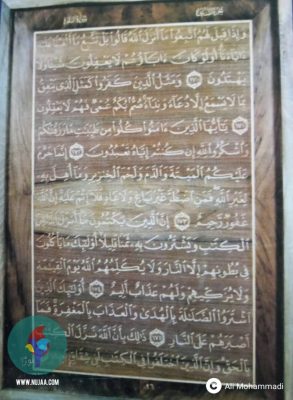 وَإِذَا قِيلَ لَهُمُ اتَّبِعُوا مَا أَنزَلَ اللَّهُ قَالُوا بَلْ نَتَّبِعُ مَا أَلْفَيْنَا
ءَابَاءَنَا أَوَلَوْ كَانَ ءَابَاؤُهُمْ لَا يَعْقِلُونَ شَيْئًا وَلَا
يَهْتَدُونَ ١٧٠ وَمَثَلُ الَّذِينَ كَفَرُوا كَمَثَلِ الَّذِي يَنْعِقُ
بِمَا لَا يَسْمَعُ إِلَّا دُعَاءً وَنِدَاءً صُمٌّ بُكْمٌ عُمْيٌ فَهُمْ لَا يَعْقِلُونَ
١٧١ يَٰأَيُّهَا الَّذِينَ ءَامَنُوا كُلُوا مِن طَيِّبَٰتِ مَا رَزَقْنَٰكُمْ
وَاشْكُرُوا لِلَّهِ إِن كُنتُمْ إِيَّاهُ تَعْبُدُونَ ١٧٢ إِنَّمَا حَرَّمَ
عَلَيْكُمُ الْمَيْتَةَ وَالدَّمَ وَلَحْمَ الْخِنزِيرِ وَمَا أُهِلَّ بِهِ
لِغَيْرِ اللَّهِ فَمَنِ اضْطُرَّ غَيْرَ بَاغٍ وَلَا عَادٍ فَلَا إِثْمَ عَلَيْهِ إِنَّ اللَّهَ
غَفُورٌ رَّحِيمٌ ١٧٣ إِنَّ الَّذِينَ يَكْتُمُونَ مَا أَنزَلَ اللَّهُ مِنَ
الْكِتَٰبِ وَيَشْتَرُونَ بِهِ ثَمَنًا قَلِيلًا أُولَٰئِكَ مَا يَأْكُلُونَ
فِي بُطُونِهِمْ إِلَّا النَّارَ وَلَا يُكَلِّمُهُمُ اللَّهُ يَوْمَ الْقِيَٰمَةِ
وَلَا يُزَكِّيهِمْ وَلَهُمْ عَذَابٌ أَلِيمٌ ١٧٤ أُولَٰئِكَ الَّذِينَ
اشْتَرَوُا الضَّلَٰلَةَ بِالْهُدَىٰ وَالْعَذَابَ بِالْمَغْفِرَةِ فَمَا
أَصْبَرَهُمْ عَلَى النَّارِ ١٧٥ ذَٰلِكَ بِأَنَّ اللَّهَ نَزَّلَ الْكِتَٰبَ
بِالْحَقِّ وَإِنَّ الَّذِينَ اخْتَلَفُوا فِي الْكِتَٰبِ لَفِي شِقَاقٍ
WWW.NUJAA.COM
© Ali Mohammadi